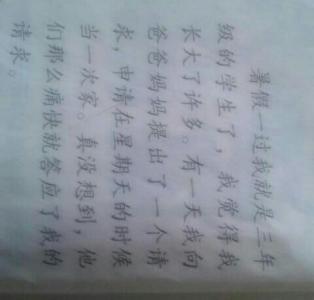 暑假一过我就是三年
级的学生了，我觉得我
长大了许多。有一天我向
爸爸妈妈提出了一个请
求，申请在星期天的时候
当一次家。真没想到，他
们那么痛快就答应了我的
请求。